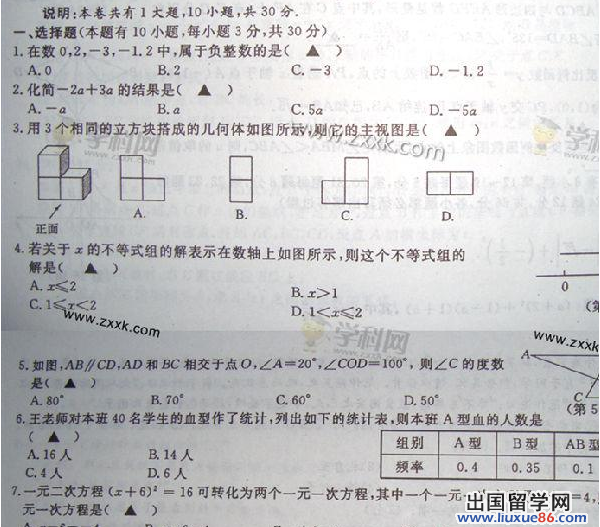 说明:本卷共有1大题,10小题,共30分.
一、选择题(本题有10小题,每小题3分,共30分)
1.在数0,2,-3,-1.2中,属于负整数的是( ▲ )
A.0 B.2 C.-3 D.-1.2
2.化简-2a+3a的结果是( ▲ )
A.-a B.a C.5a D.-5a
3.用3个相同的立方块搭成的几何体如图所示,则它的主视图是( ▲ )
学科网
www.zxxk.com
正面 A. B. C. D.
4.若关于x的不等式组的解表示在数轴上如图所示,则这个不等式组的
解是( ▲ )
A.x≤2 B.x>1
C.1≤x<2 D.1<x≤2
0
(第
www.zxxk.com
学科网
www.zxxk.com
5.如图,AB∥CD,AD和BC相交于点O,∠A=20°,∠COD=100°,则∠C的度数
是( ▲ )
A.80° B.70° C.60° D.50°
A
C
(第5
6.王老师对本班40名学生的血型作了统计,列出如下的统计表,则本班A型血的人数是
( ▲ )
A.16人 B.14人
C.4人 D.6人
组别 A型 B型 AB型
频率 0.4 0.35 0.1
7.一元二次方程(x+6)²=16可转化为两个一元一次方程,其中一个一元一次方程是x+6=4,
元一次方程是( ▲ )
出国留学网
www.liuxue86.com